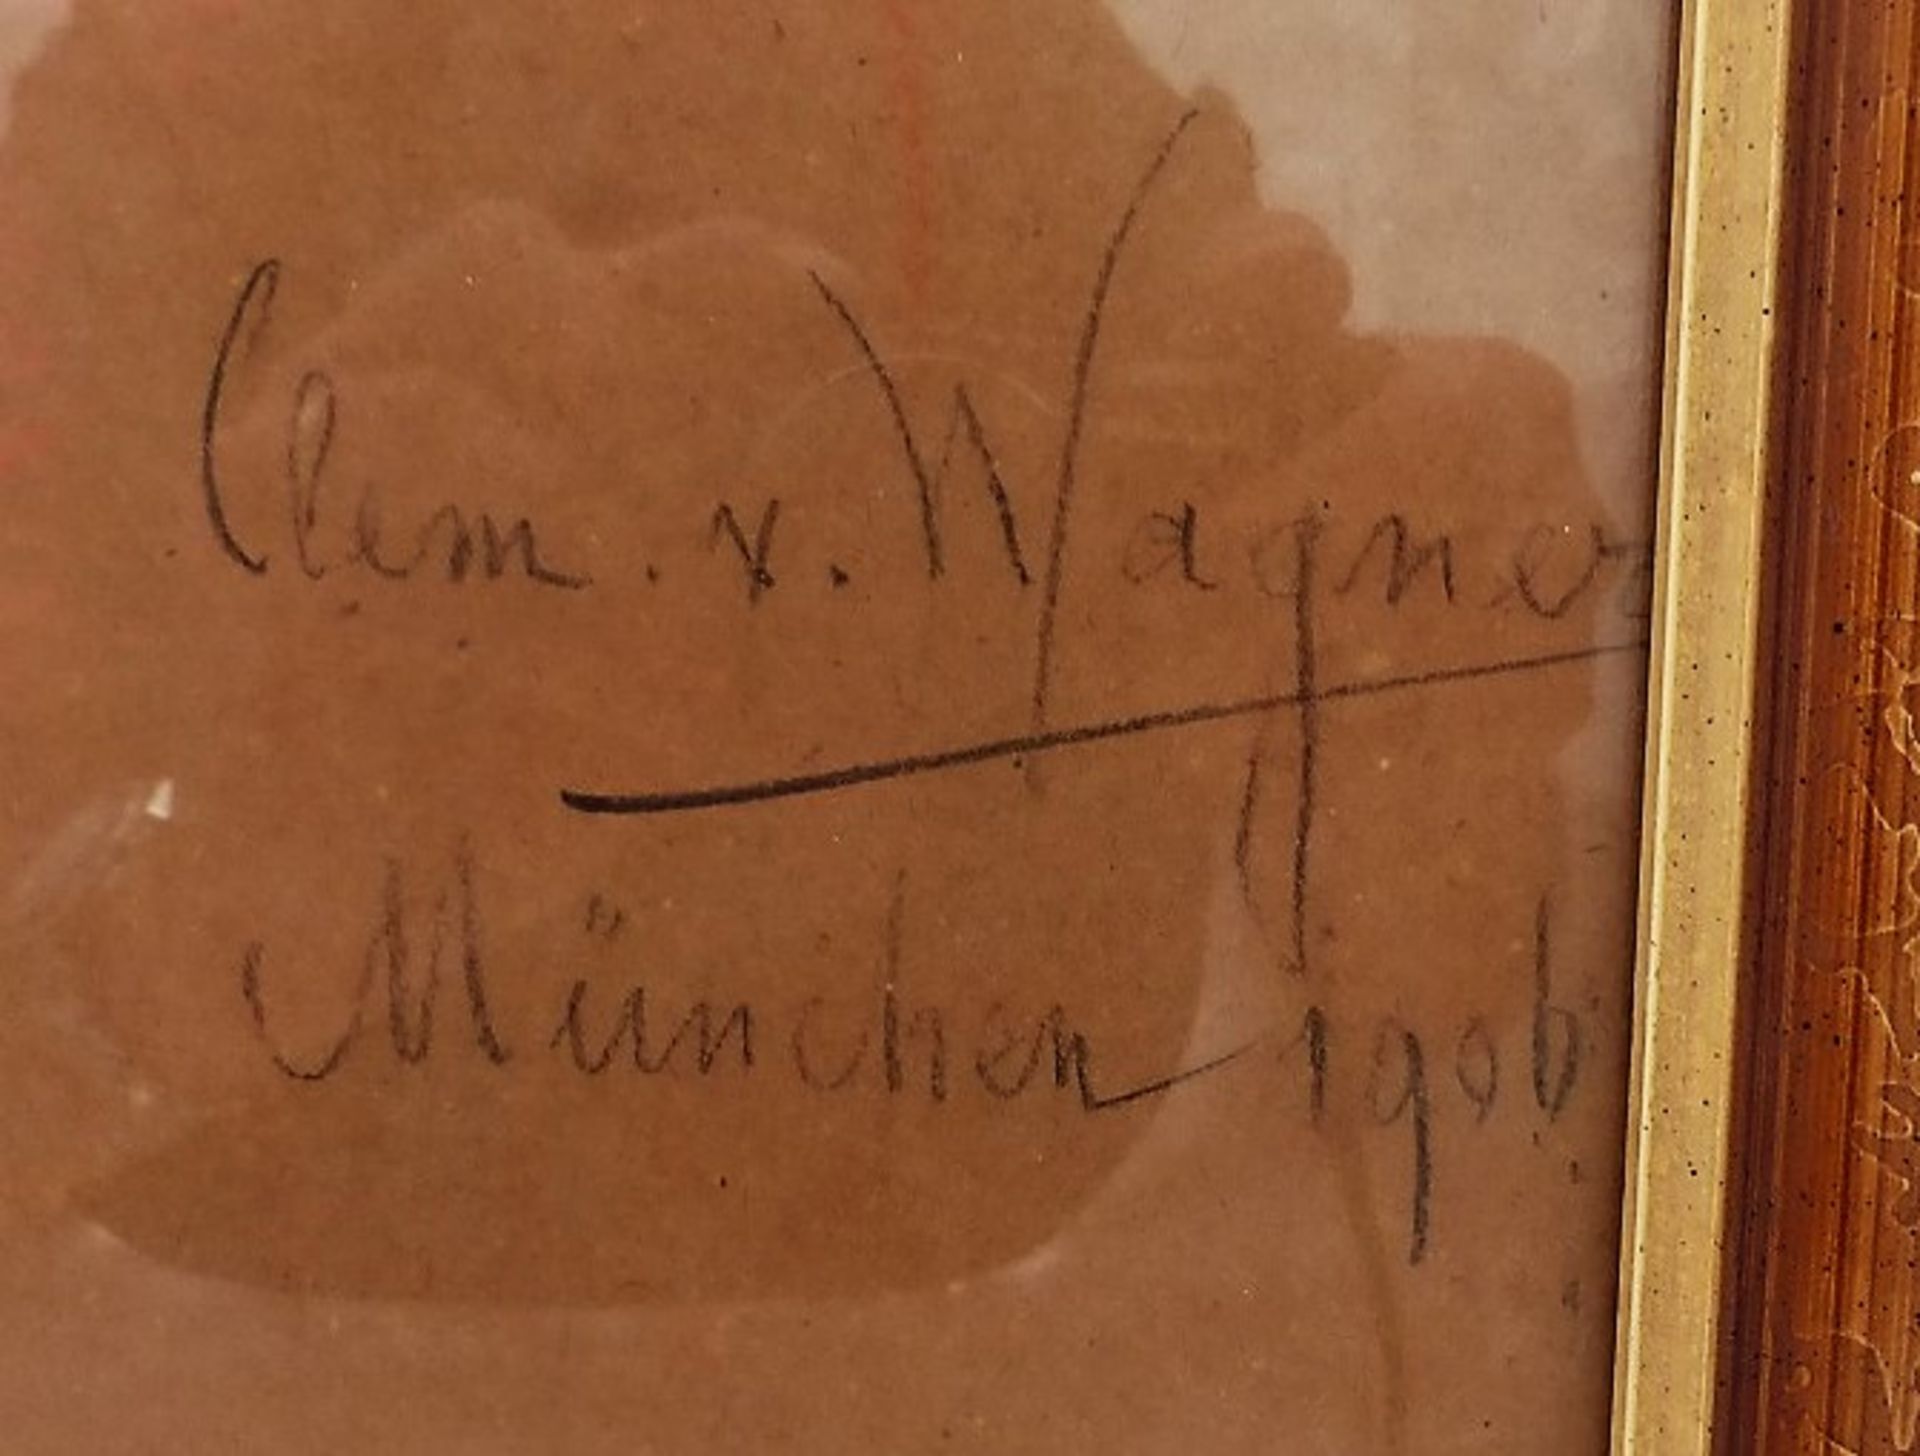 Clem. v. Wagner
München 1906